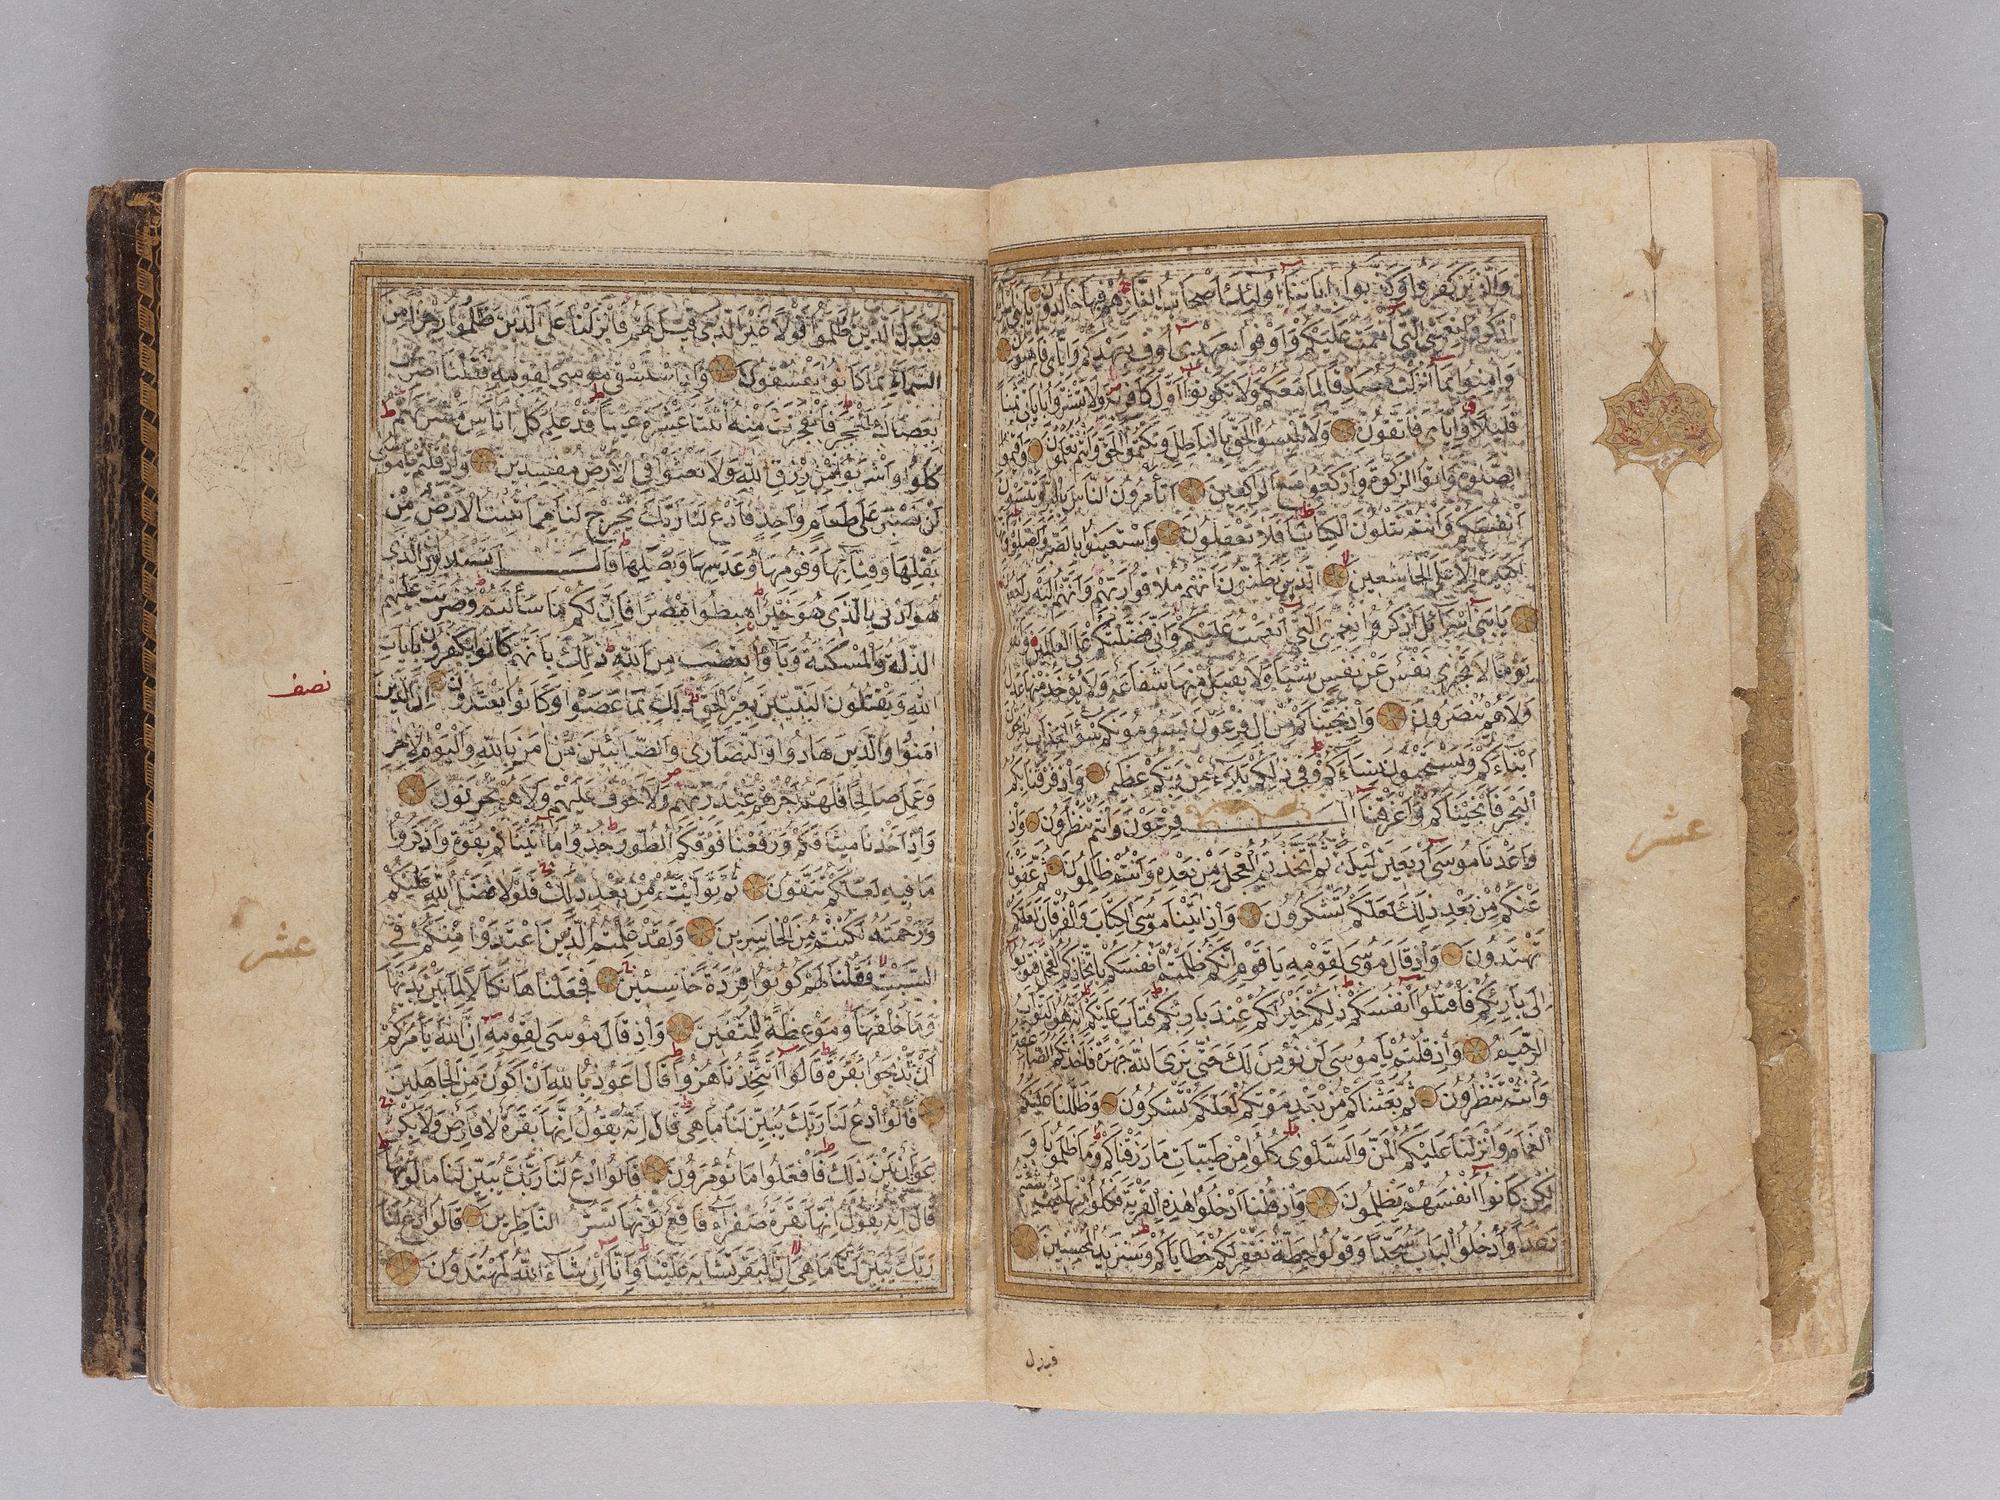 والذين كفروا وكذبوا باياتنا اولئك اصحاب النار هم فيها خالدون يا بني
اذكروا نعمتي التي انعمت عليكم واوفوا بعهدي اوف بعهدكم واياي فارهبون
وامنوا بما انزلت مصدقا لما معكم ولا تكونوا اول كافر به ولا تشتروا باياتي ثمنا
قليلا واياي فاتقون ولا تلبسوا الحق بالباطل وتكتموا الحق وانتم تعلمون واقيموا
الصلوة واتوا الزكوة واركعوا مع الراكعين اتامرون الناس بالبر وتنسون
انفسكم وانتم تتلون الكتاب افلا تعقلون واستعينوا بالصبر والصلوة
لكبيرة الا على الخاشعين الذين يظنون انهم ملاقوا ربهم وانهم اليه راجعون
يا بني اسرائل اذكروا نعمتي التي انعمت عليكم واني فضلتكم على العالمين
يوما لا تجزي نفس عن نفس شيئا ولا يقبل منها شفاعة ولا يؤخذ منها عدل
ولا هم ينصرون واذ نجيناكم من ال فرعون يسومونكم سوء العذاب يذبحون
ابناءكم ويستحيون نساءكم وفي ذلكم بلاء من ربكم عظيم واذ فرقنا بكم
البحر فانجيناكم واغرقنا ال فرعون وانتم تنظرون واذ
واعدنا موسى اربعين ليلة ثم اتخذتم العجل من بعده وانتم ظالمون ثم عفونا
عنكم من بعد ذلك لعلكم تشكرون واذ اتينا موسى الكتاب والفرقان لعلكم
تهتدون واذ قال موسى لقومه يا قوم انكم ظلمتم انفسكم باتخاذكم العجل فتوبوا
الى بارئكم فاقتلوا انفسكم ذلكم خير لكم عند بارئكم فتاب عليكم انه هو التواب
الرحيم واذ قلتم يا موسى لن نؤمن لك حتى نرى الله جهرة فاخذتكم الصاعقة
وانتم تنظرون ثم بعثناكم من بعد موتكم لعلكم تشكرون وظللنا عليكم
الغمام وانزلنا عليكم المن والسلوى كلوا من طيبات ما رزقناكم وما ظلمونا و
لكن كانوا انفسهم يظلمون واذ قلنا ادخلوا هذه القرية فكلوا منها حيث شئتم
رغدا وادخلوا الباب سجدا وقولوا حطة نغفر لكم خطاياكم وسنزيد المحسنين
عشر
فبدل
فبدل الذين ظلموا قولا غير الذي قيل لهم فانزلنا على الذين ظلموا رجزا من
السماء بما كانوا يفسقون واذ استسقى موسى لقومه فقلنا اضرب
بعصاك الحجر فانفجرت منه اثنتا عشرة عينا قد علم كل اناس مشربهم
كلوا واشربوا من رزق الله ولا تعثوا في الارض مفسدين واذ قلتم يا موسى
لن نصبر على طعام واحد فادع لنا ربك يخرج لنا مما تنبت الارض من
بقلها وقثائها وفومها وعدسها وبصلها قال اتستبدلون الذي
هو ادنى بالذي هو خير اهبطوا مصرا فان لكم ما سالتم وضربت عليهم
الذلة والمسكنة وباؤا بغضب من الله ذلك بانهم كانوا يكفرون بايات
الله ويقتلون النبيين بغير الحق ذلك بما عصوا وكانوا يعتدون ان الذين
امنوا والذين هادوا والنصارى والصابئين من امن بالله واليوم الاخر
وعمل صالحا فلهم اجرهم عند ربهم ولا خوف عليهم ولا هم يحزنون
واذ اخذنا ميثاقكم ورفعنا فوقكم الطور خذوا ما اتيناكم بقوة واذكروا
ما فيه لعلكم تتقون ثم توليتم من بعد ذلك فلولا فضل الله عليكم
ورحمته لكنتم من الخاسرين ولقد علمتم الذين اعتدوا منكم في
السبت فقلنا لهم كونوا قردة خاسئين فجعلناها نكالا لما بين يديها
وما خلفها وموعظة للمتقين واذ قال موسى لقومه ان الله يامركم
ان تذبحوا بقرة قالوا اتتخذنا هزوا قال اعوذ بالله ان اكون من الجاهلين
قالوا ادع لنا ربك يبين لنا ما هي قال انه يقول انها بقرة لا فارض ولا بكر
عوان بين ذلك فافعلوا ما تؤمرون قالوا ادع لنا ربك يبين لنا ما لونها
قال انه يقول انها بقرة صفراء فاقع لونها تسر الناظرين قالوا ادع لنا
ربك يبين لنا ما هي ان البقر تشابه علينا وانا ان شاء الله لمهتدون
نصف
عشر